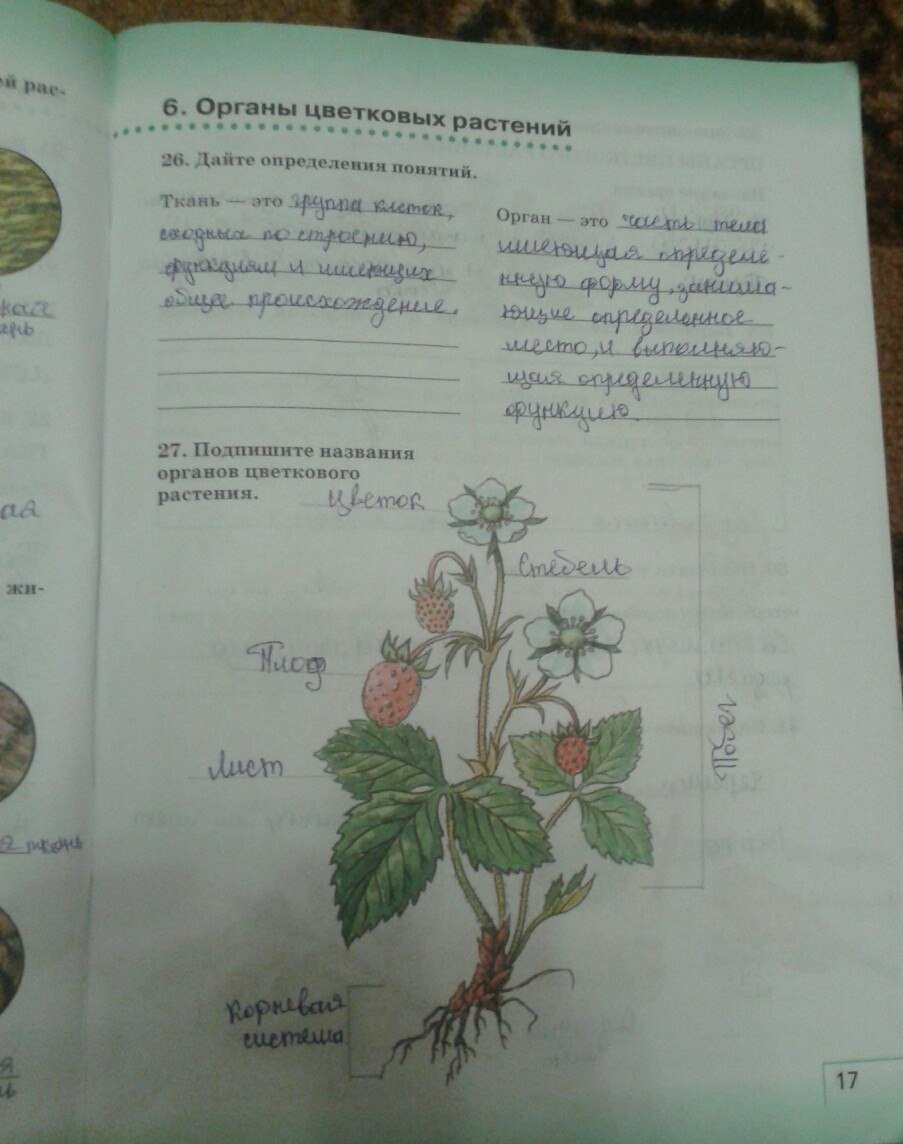 ей рас-
ая
жи-
я ткань
6. Органы цветковых растений
26. Дайте определения понятий.
Ткань — это группа клеток,
сходных по строению,
функциям и имеющих
общее происхождение.
Орган — это часть тела
имеющая определе-
нную форму, занима-
ющие определонное
место, и выполняю-
щая определенную
функцию.
27. Подпишите названия
органов цветкового
растения.
Цветок
Стебель
Плод
Лист
Побег
Корневая
система
17